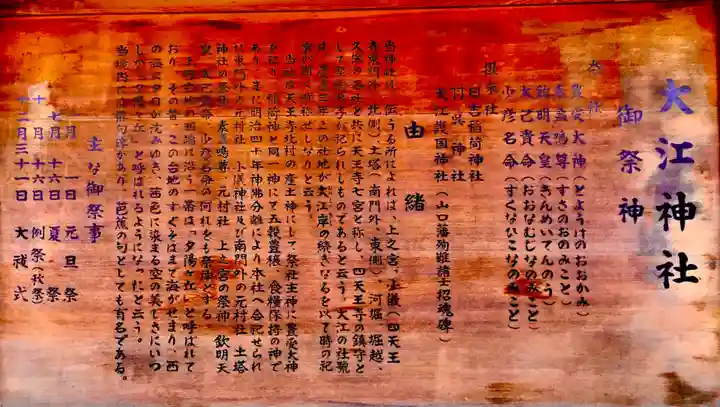 大江神社
御祭神
本社
豊受大神(とようけのおおかみ)
素盞嗚尊(すさのおのみこと)
欽明天皇(きんめいてんのう)
大己貴命(おおなむじなのみこと)
少彦名命(すくないこなのみこと)
摂末社
日吉稲荷神社
大江護国神社(山口藩殉難諸士招魂碑)
由緒
当神社は、伝うる所によれば、上之宮、小儀(四天王
寺東門外、北側)、土塔(南門外、東側)、河堀、堀越、
久保の各社と共に天王寺七宮と称し、四天王寺の鎮守と
して聖徳太子が祀られしものであると云う。大江の社號
当地は天王寺北村の産土神にして祭祀主神に豊受大神
を祀り、稲荷神と同一神にて五穀豊穣、食糧保持の神で
あり、また明治四十年神佛分離により本社へ合祀せられ
た東門外の元村社、小儀神社及び南門外の元村社、土塔
神社の祭神、素盞嗚尊、元村社、上之宮の祭神、欽明天
皇、大己貴命、少彦名命の何れをも祭神とする。
上町台地の西端に沿う一帯は「夕陽ヶ丘」と呼ばれて
おり、その昔、この台地のすぐそばまで海がせまり、西
の海に夕日が沈みゆき、茜色に染まる空の美しさにいつ
しか「夕陽ヶ丘」と呼ばれるようになったと云う。
当境内には俳句碑があり、芭蕉の句としても有名である。
主な御祭事
一月 一日 元旦祭
七月十六日 夏祭
十月十六日 例祭(秋祭)
十二月三十一日 大祓式